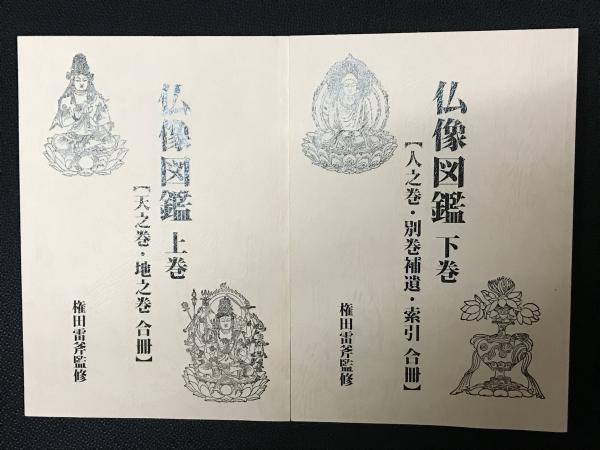 仏像図鑑 上巻
【天之巻・地之巻 合冊】
権田雷斧監修
仏像図鑑 下巻
【人之巻・別巻補遺・索引 合冊】
権田雷斧監修